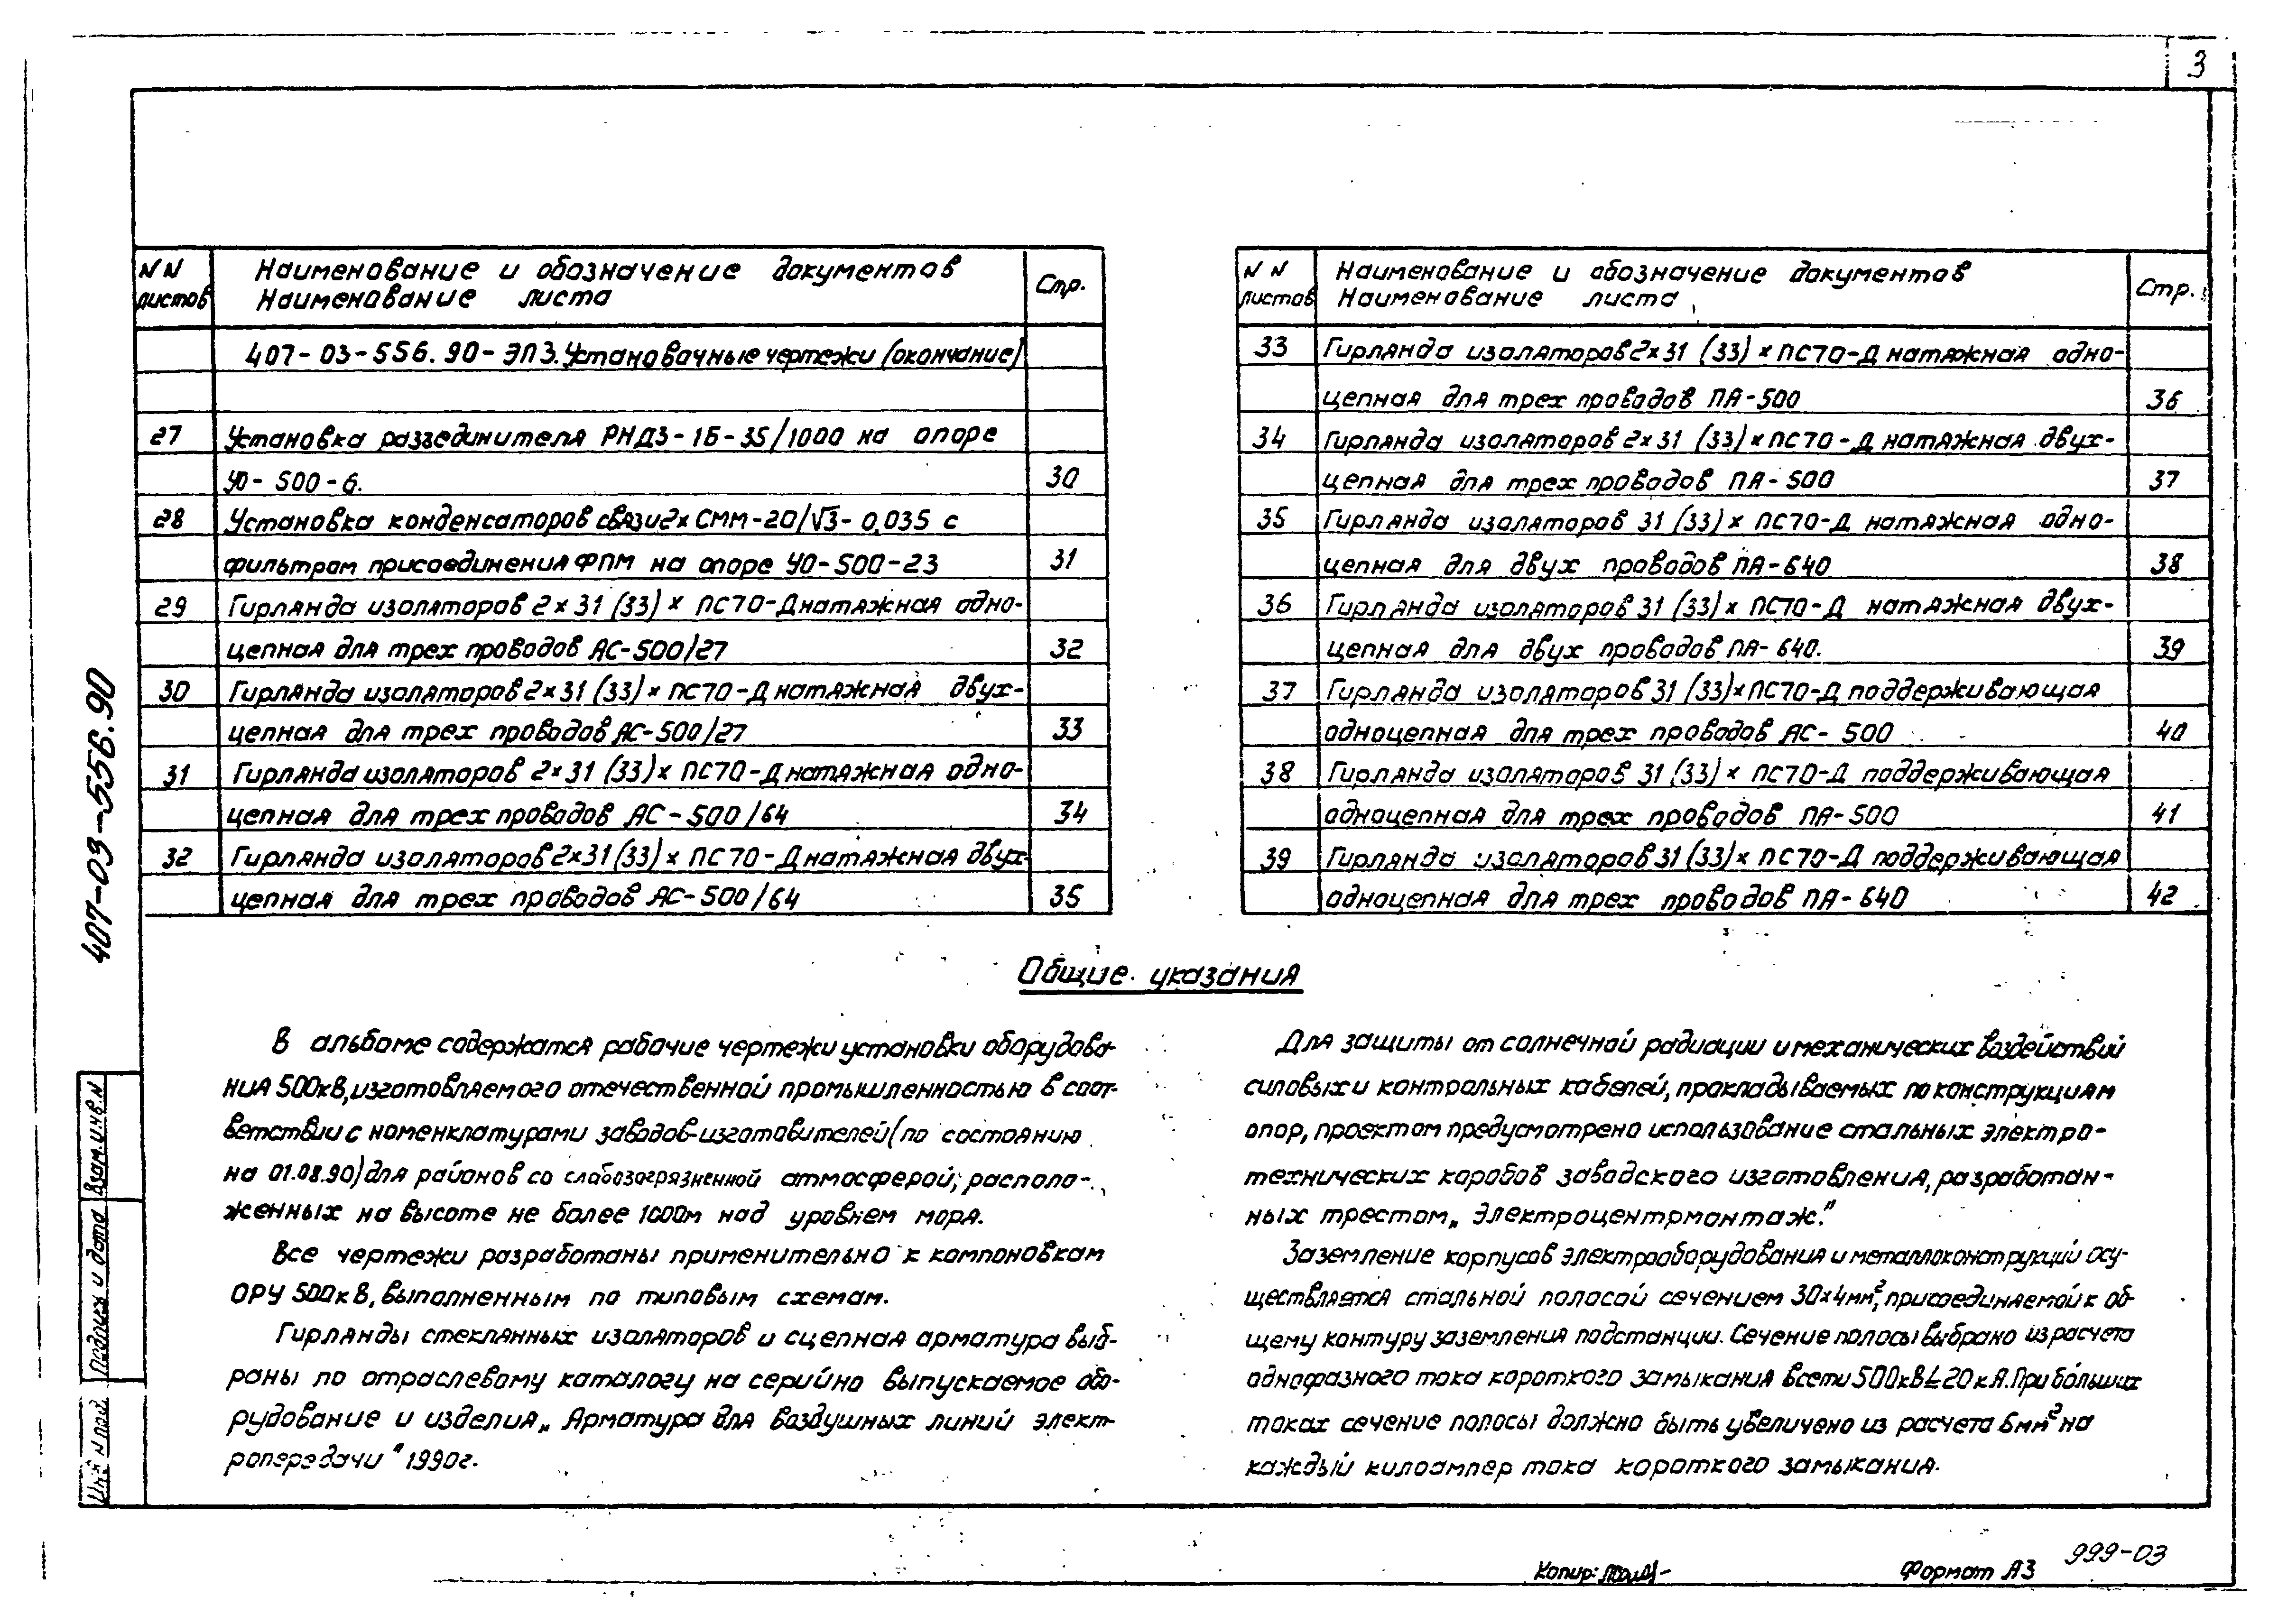 3
NN Наименование и обозначение документов Стр.
листов Наименование листа
407-03-556.90-ЭП3. Установочные чертежи (окончание)
27 Установка разъединителя РНДЗ-1Б-35/1000 на опоре
УО-500-6. 30
28 Установка конденсаторов связи 2х СММ-20/√3-0,035 с
фильтром присоединения ФПМ на опоре УО-500-23 31
29 Гирлянда изоляторов 2х31 (33) х ПС70-Д натяжная одно-
цепная для трех проводов АС-500/27 32
30 Гирлянда изоляторов 2х31 (33) х ПС70-Д натяжная двух-
цепная для трех проводов АС-500/27 33
31 Гирлянда изоляторов 2х31 (33) х ПС70-Д натяжная одно-
цепная для трех проводов АС-500/64 34
32 Гирлянда изоляторов 2х31 (33) х ПС70-Д натяжная двух-
цепная для трех проводов АС-500/64 35
NN Наименование и обозначение документов Стр.
листов Наименование листа
33 Гирлянда изоляторов 2х31 (33) х ПС70-Д натяжная одно-
цепная для трех проводов ПА-500 36
34 Гирлянда изоляторов 2х31 (33) х ПС70-Д натяжная двух-
цепная для трех проводов ПА-500 37
35 Гирлянда изоляторов 31 (33) х ПС70-Д натяжная одно-
цепная для двух проводов ПА-640 38
36 Гирлянда изоляторов 31 (33) х ПС70-Д натяжная двух-
цепная для двух проводов ПА-640. 39
37 Гирлянда изоляторов 31 (33) х ПС70-Д поддерживающая
одноцепная для трех проводов АС-500 40
38 Гирлянда изоляторов 31 (33) х ПС70-Д поддерживающая
одноцепная для трех проводов ПА-500 41
39 Гирлянда изоляторов 31 (33) х ПС70-Д поддерживающая
одноцепная для трех проводов ПА-640 42
Общие указания
В альбоме содержатся рабочие чертежи установки оборудова-
ния 500кВ, изготовляемого отечественной промышленностью в соот-
ветствии с номенклатурами заводов-изготовителей (по состоянию
на 01.08.90) для районов со слабозагрязненной атмосферой, располо-
женных на высоте не более 1000м над уровнем моря.
Все чертежи разработаны применительно к компоновкам
ОРУ 500кВ, выполненным по типовым схемам.
Гирлянды стеклянных изоляторов и сцепная арматура выб-
раны по отраслевому каталогу на серийно выпускаемое обо-
рудование и изделия „Арматура для воздушных линий элект-
ропередачи" 1990г.
Для защиты от солнечной радиации и механических воздействий
силовых и контрольных кабелей, прокладываемых по конструкциям
опор, проектом предусмотрено использование стальных электро-
технических коробов заводского изготовления, разработан-
ных трестом „Электроцентрмонтаж."
Заземление корпусов электрооборудования и металлоконструкций осу-
ществляется стальной полосой сечением 30х4мм², присоединяемой к об-
щему контуру заземления подстанции. Сечение полосы выбрано из расчета
однофазного тока короткого замыкания в сети 500кВ≤20кА. При больших
токах сечение полосы должно быть увеличено из расчета 6мм² на
каждый килоампер тока короткого замыкания.
407-03-556.90
Взам.инв.N
Подпись и дата
Инв N подл.
Копир:
Формат А3
999-03